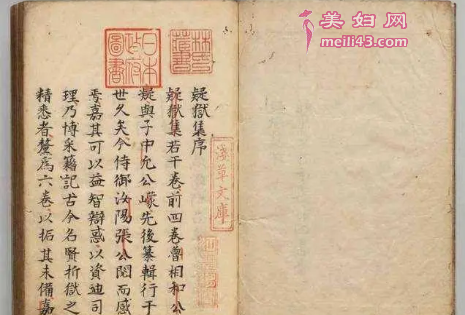 疑獄集序
疑獄集若干卷前四卷魯相和公
疑與子中允公㠓先後纂輯行于
世久矣今侍御汝陽張公閱而感
焉嘉其可以益智辯惑以資迪司
理乃博采籍記古今名賢折獄之
精悉者釐為六卷以拓其未備嘉
林氏藏書
日本政府圖書
淺草文庫
美妇网
meili43.com